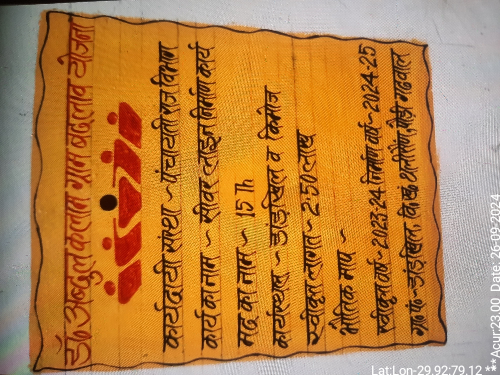 डॉ. अब्दुल कलाम ग्राम बदलाव योजना
कार्यदायी संस्था ~ पंचायती राज विभाग
कार्य का नाम ~ सीवर लाइन निर्माण कार्य
मद का नाम ~ 15 Th
कार्यस्थल ~ डांडखिल व किमोज
स्वीकृत लागत ~ 2.50 लाख
भौतिक माप ~
स्वीकृत वर्ष ~ 2023-24 निर्माण वर्ष ~ 2024-25
ग्रा०पं० डांडखिल, वि.ख. थलीसैंण, पौड़ी गढ़वाल
Lat:Lon-29.92:79.12 ** Acur:23.00 Date: 26-09-2024